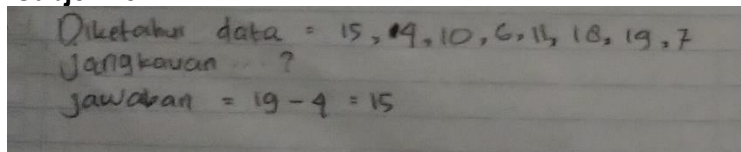 Diketahui data = 15, 4, 10, 6, 11, 18, 19, 7
Jangkauan ... ?
Jawaban = 19 - 4 = 15